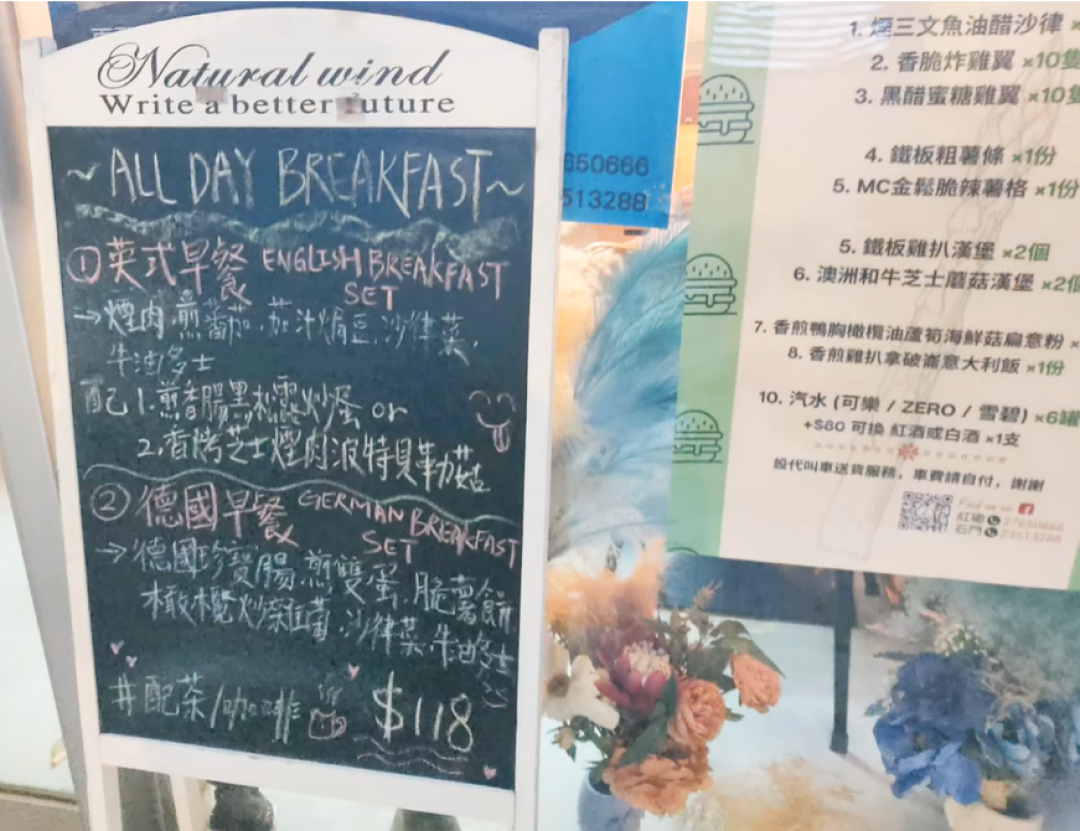 Natural wind
Write a better future
~ ALL DAY BREAKFAST ~
① 英式早餐 ENGLISH BREAKFAST
SET
→煙肉.煎蕃茄.茄汁焗豆.沙律菜.
牛油多士
配 1.煎香腸黑松露炒蛋 or
2.香烤芝士煙肉波特貝勒菇
② 德國早餐 GERMAN BREAKFAST
SET
→德國珍寶腸.煎雙蛋.脆薯餅
橄欖炒雜菌.沙律菜.牛油多士
#配茶/咖啡 $118
650666
513288
1. 煙三文魚油醋沙律 ×
2. 香脆炸雞翼 ×10隻
3. 黑醋蜜糖雞翼 ×10隻
4. 鐵板粗薯條 ×1份
5. MC金鬆脆辣薯格 ×1份
5. 鐵板雞扒漢堡 ×2個
6. 澳洲和牛芝士蘑菇漢堡 ×2個
7. 香煎鴨胸橄欖油蘆筍海鮮菇扁意粉 ×
8. 香煎雞扒拿破崙意大利飯 ×1份
10. 汽水 (可樂 / ZERO / 雪碧) ×6罐
+$80 可換 紅酒或白酒 ×1支
設代叫車送貨服務，車費請自付，謝謝
Find us on
紅磡 27650666
石門 23513288